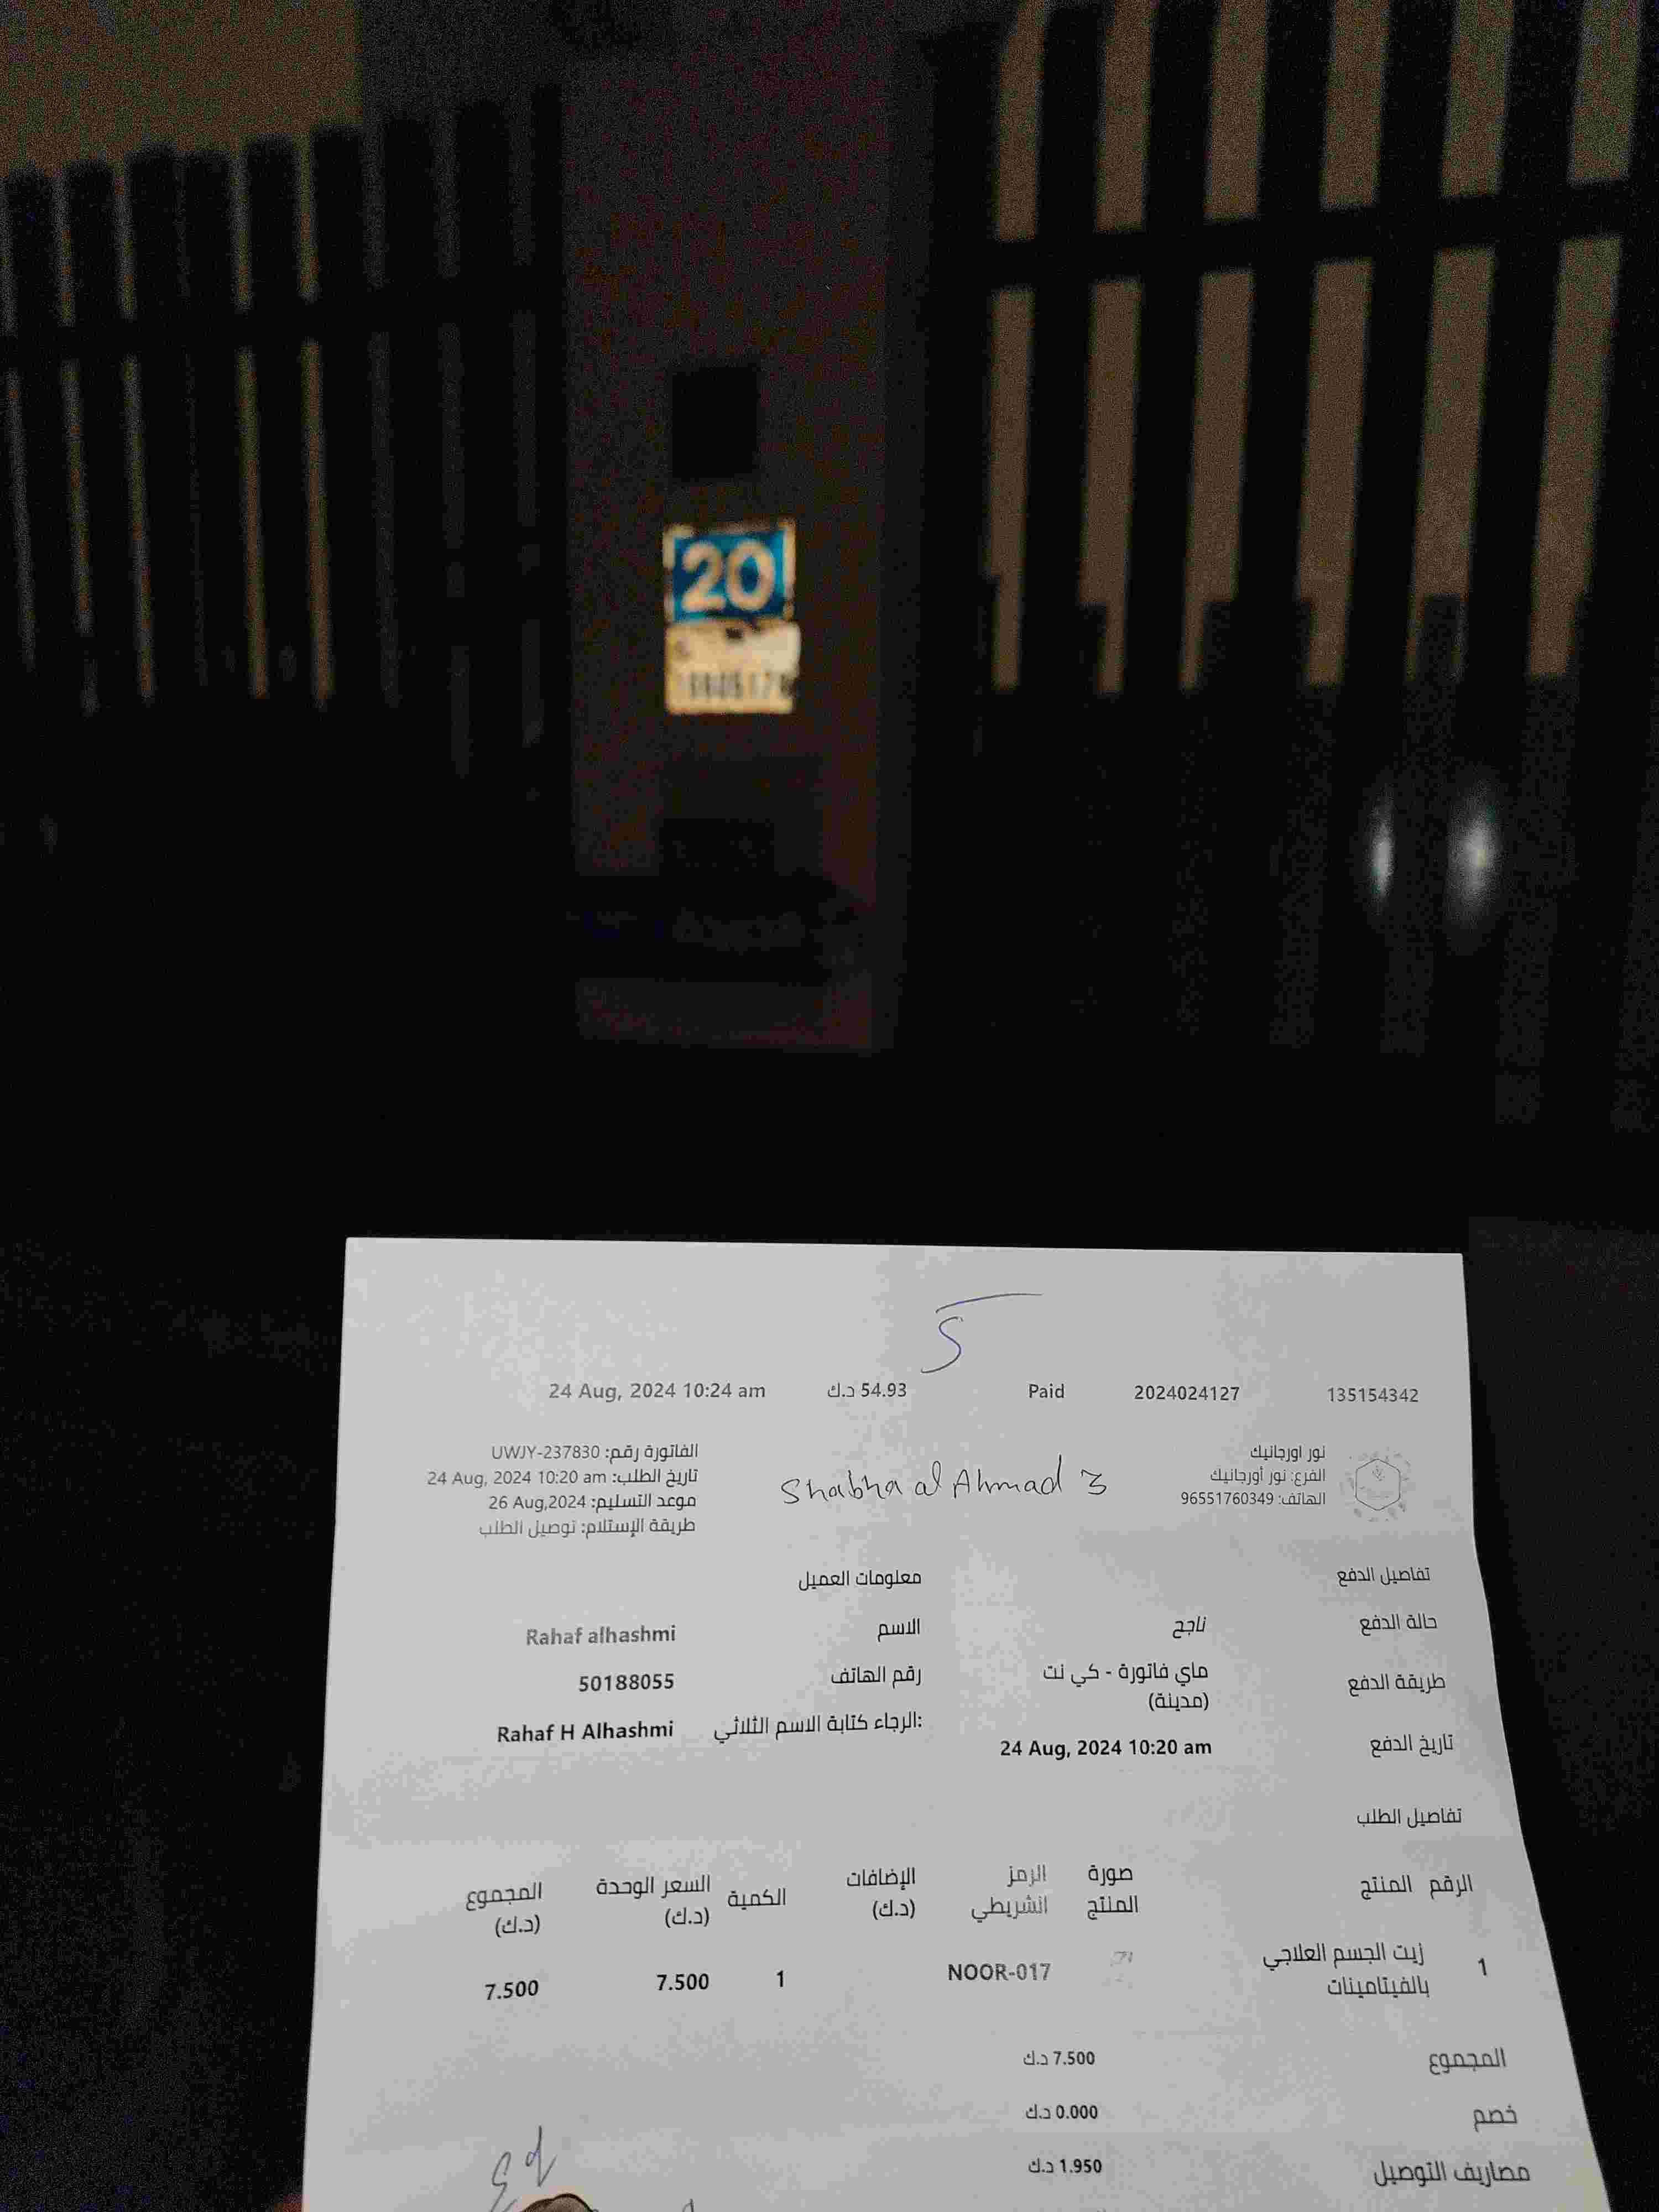 20
5
135154342 2024024127 Paid 54.93 د.ك 24 Aug, 2024 10:24 am
نور اورجانيك
الفرع: نور أورجانيك
الهاتف: 96551760349
Shabha al Ahmad 3
الفاتورة رقم: UWJY-237830
تاريخ الطلب: 24 Aug, 2024 10:20 am
موعد التسليم: 26 Aug,2024
طريقة الإستلام: توصيل الطلب
تفاصيل الدفع
حالة الدفع ناجح
طريقة الدفع ماي فاتورة - كي نت
(مدينة)
تاريخ الدفع 24 Aug, 2024 10:20 am
معلومات العميل
الاسم Rahaf alhashmi
رقم الهاتف 50188055
الرجاء كتابة الاسم الثلاثي: Rahaf H Alhashmi
تفاصيل الطلب
الرقم المنتج صورة الرمز الإضافات الكمية السعر الوحدة المجموع
المنتج الشريطي (د.ك) (د.ك) (د.ك)
1 زيت الجسم العلاجي NOOR-017 1 7.500 7.500
بالفيتامينات
المجموع 7.500 د.ك
خصم 0.000 د.ك
مصاريف التوصيل 1.950 د.ك